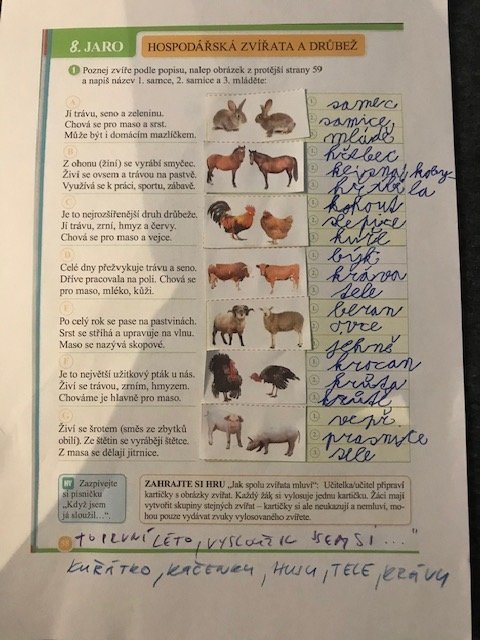 8. JARO
HOSPODÁŘSKÁ ZVÍŘATA A DRŮBEŽ
1 Poznej zvíře podle popisu, nalep obrázek z protější strany 59
a napiš název 1. samce, 2. samice a 3. mláděte:
A
Jí trávu, seno a zeleninu.
Chová se pro maso a srst.
Může být i domácím mazlíčkem.
1. samec
2. samice
3. mládě
B
Z ohonu (žíní) se vyrábí smyčec.
Živí se ovsem a trávou na pastvě.
Využívá se k práci, sportu, zábavě.
1. hřebec
2. koby-
3. hříbě la
C
Je to nejrozšířenější druh drůbeže.
Jí trávu, zrní, hmyz a červy.
Chová se pro maso a vejce.
1. kohout
2. slepice
3. kuře
D
Celé dny přežvykuje trávu a seno.
Dříve pracovala na poli. Chová se
pro maso, mléko, kůži.
1. býk
2. kráva
3. tele
F
Po celý rok se pase na pastvinách.
Srst se stříhá a upravuje na vlnu.
Maso se nazývá skopové.
1. beran
2. ovce
3. jehně
E
Je to největší užitkový pták u nás.
Živí se trávou, zrním, hmyzem.
Chováme je hlavně pro maso.
1. krocan
2. krůta
3. krůtě
G
Živí se šrotem (směs ze zbytků
obilí). Ze štětin se vyrábějí štětce.
Z masa se dělají jitrnice.
1. vepř
2. prasnice
3. sele
HV Zazpívejte
si písničku
„Když jsem
já sloužil…“.
ZAHRAJTE SI HRU „Jak spolu zvířata mluví“: Učitelka/učitel připraví
kartičky s obrázky zvířat. Každý žák si vylosuje jednu kartičku. Žáci mají
vytvořit skupiny stejných zvířat – kartičky si ale neukazují a nemluví, mo-
hou pouze vydávat zvuky vylosovaného zvířete.
58
TO PRVNÍ LÉTO, VYSLOUŽIL JSEM SI ..."
KUŘÁTKO, KAČENKU, HUSU, TELE, KRÁVU